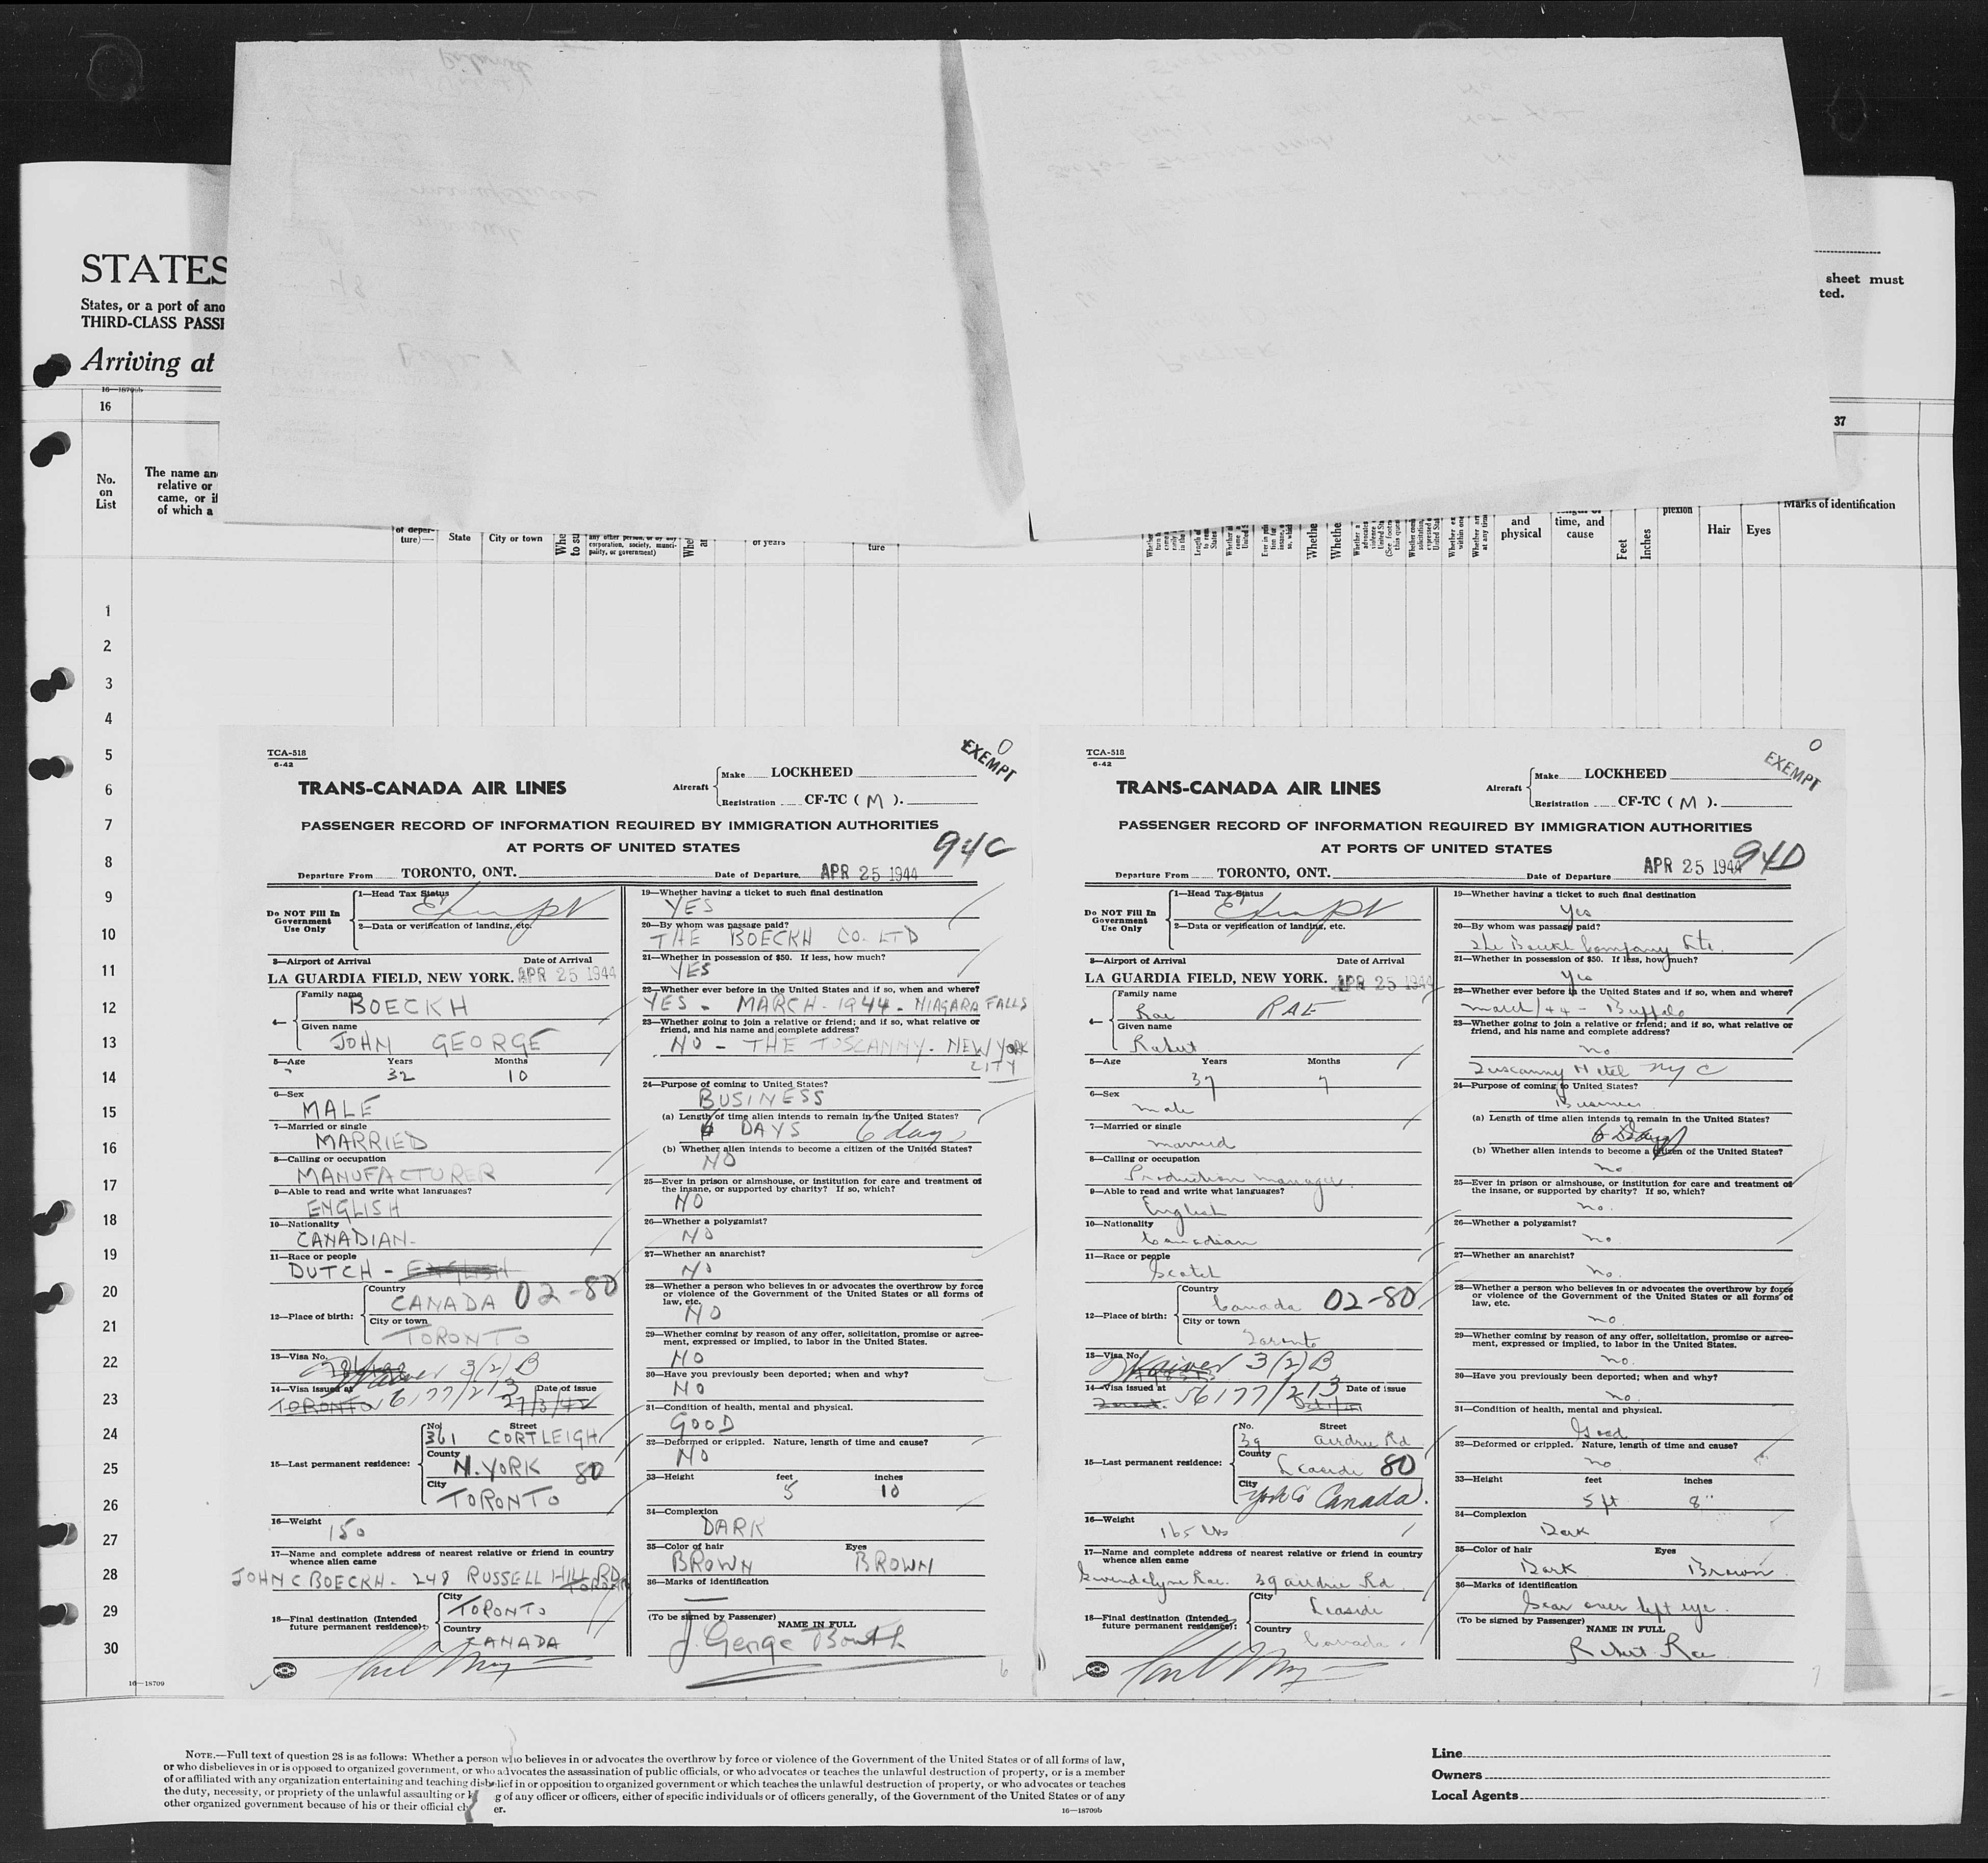 STATES
States, or a port of ano
THIRD-CLASS PASSE
Arriving at
16—18709b
sheet must
ted.
16
37
No.
on
List
The name an
relative or
came, or if
of which a
of depar-
ture)—
State
City or town
any other person, or by any
corporation, society, munici-
pality, or government)
of years
ture
and
physical
time, and
cause
Feet
Inches
plexion
Hair
Eyes
Marks of identification
1
2
3
4
5
6
7
8
9
10
11
12
13
14
15
16
17
18
19
20
21
22
23
24
25
26
27
28
29
30
16—18709
TCA-518
6-42
EXEMPT
0
TRANS-CANADA AIR LINES
Aircraft
Make LOCKHEED
Registration CF-TC ( M ).
PASSENGER RECORD OF INFORMATION REQUIRED BY IMMIGRATION AUTHORITIES
AT PORTS OF UNITED STATES
94C
Departure From TORONTO, ONT.
Date of Departure APR 25 1944
Do NOT Fill In
Government
Use Only
1—Head Tax Status
Exempt
2—Data or verification of landing, etc.
3—Airport of Arrival Date of Arrival
LA GUARDIA FIELD, NEW YORK. APR 25 1944
4—
Family name
BOECKH
Given name
JOHN GEORGE
5—Age Years Months
32 10
6—Sex
MALE
7—Married or single
MARRIED
8—Calling or occupation
MANUFACTURER
9—Able to read and write what languages?
ENGLISH
10—Nationality
CANADIAN-
11—Race or people
DUTCH - ENGLISH
12—Place of birth:
Country
CANADA 02-80
City or town
TORONTO
13—Visa No.
Waiver 3(2)B
14—Visa issued at Date of issue
TORONTO 6177/213 27/3/42
15—Last permanent residence:
No. Street
361 CORTLEIGH
County
N. YORK 80
City
TORONTO
16—Weight
150
17—Name and complete address of nearest relative or friend in country
whence alien came
JOHN C BOECKH. 248 RUSSELL HILL RD
TORONTO
18—Final destination (Intended
future permanent residence):
City
TORONTO
Country
CANADA
19—Whether having a ticket to such final destination
YES
20—By whom was passage paid?
THE BOECKH CO. LTD
21—Whether in possession of $50. If less, how much?
YES
22—Whether ever before in the United States and if so, when and where?
YES - MARCH - 1944 - NIAGARA FALLS
23—Whether going to join a relative or friend; and if so, what relative or
friend, and his name and complete address?
NO - THE TUSCANNY - NEW YORK
CITY
24—Purpose of coming to United States?
BUSINESS
(a) Length of time alien intends to remain in the United States?
DAYS 6 days
(b) Whether alien intends to become a citizen of the United States?
NO
25—Ever in prison or almshouse, or institution for care and treatment of
the insane, or supported by charity? If so, which?
NO
26—Whether a polygamist?
NO
27—Whether an anarchist?
NO
28—Whether a person who believes in or advocates the overthrow by force
or violence of the Government of the United States or all forms of
law, etc.
NO
29—Whether coming by reason of any offer, solicitation, promise or agree-
ment, expressed or implied, to labor in the United States.
NO
30—Have you previously been deported; when and why?
NO
31—Condition of health, mental and physical.
GOOD
32—Deformed or crippled. Nature, length of time and cause?
NO
33—Height feet inches
5 10
34—Complexion
DARK
35—Color of hair Eyes
BROWN BROWN
36—Marks of identification
—
(To be signed by Passenger)
NAME IN FULL
J. George Boeckh
TCA-518
6-42
0
EXEMPT
TRANS-CANADA AIR LINES
Aircraft
Make LOCKHEED
Registration CF-TC ( M ).
PASSENGER RECORD OF INFORMATION REQUIRED BY IMMIGRATION AUTHORITIES
AT PORTS OF UNITED STATES
94D
Departure From TORONTO, ONT.
Date of Departure APR 25 1944
Do NOT Fill In
Government
Use Only
1—Head Tax Status
Exempt
2—Data or verification of landing, etc.
3—Airport of Arrival Date of Arrival
LA GUARDIA FIELD, NEW YORK. APR 25 1944
4—
Family name
Rae RAE
Given name
Robert
5—Age Years Months
37 7
6—Sex
male
7—Married or single
married
8—Calling or occupation
Production manager.
9—Able to read and write what languages?
English
10—Nationality
Canadian
11—Race or people
Scotch
12—Place of birth:
Country
Canada 02-80
City or town
Toronto
13—Visa No.
Waiver 3(2)B
14—Visa issued at Date of issue
56177/213
15—Last permanent residence:
No. Street
39 Airdrie Rd
County
Leaside 80
City
York Co Canada.
16—Weight
165 lbs
17—Name and complete address of nearest relative or friend in country
whence alien came
Gwendolyne Rae. 39 airdrie Rd.
18—Final destination (Intended
future permanent residence):
City
Leaside
Country
Canada.
19—Whether having a ticket to such final destination
Yes
20—By whom was passage paid?
The Boeckh Company Ltd.
21—Whether in possession of $50. If less, how much?
Yes
22—Whether ever before in the United States and if so, when and where?
march/44 - Buffalo
23—Whether going to join a relative or friend; and if so, what relative or
friend, and his name and complete address?
no
Tuscanny Hotel NYC
24—Purpose of coming to United States?
Business
(a) Length of time alien intends to remain in the United States?
6 Days
(b) Whether alien intends to become a citizen of the United States?
no
25—Ever in prison or almshouse, or institution for care and treatment of
the insane, or supported by charity? If so, which?
no.
26—Whether a polygamist?
no
27—Whether an anarchist?
no.
28—Whether a person who believes in or advocates the overthrow by force
or violence of the Government of the United States or all forms of
law, etc.
no.
29—Whether coming by reason of any offer, solicitation, promise or agree-
ment, expressed or implied, to labor in the United States.
no.
30—Have you previously been deported; when and why?
no.
31—Condition of health, mental and physical.
Good
32—Deformed or crippled. Nature, length of time and cause?
no.
33—Height feet inches
5 ft 8"
34—Complexion
Dark
35—Color of hair Eyes
Dark Brown
36—Marks of identification
Scar over left eye.
(To be signed by Passenger)
NAME IN FULL
Robert Rae
NOTE.—Full text of question 28 is as follows: Whether a person who believes in or advocates the overthrow by force or violence of the Government of the United States or of all forms of law,
or who disbelieves in or is opposed to organized government, or who advocates the assassination of public officials, or who advocates or teaches the unlawful destruction of property, or is a member
of or affiliated with any organization entertaining and teaching disbelief in or opposition to organized government or which teaches the unlawful destruction of property, or who advocates or teaches
the duty, necessity, or propriety of the unlawful assaulting or k g of any officer or officers, either of specific individuals or of officers generally, of the Government of the United States or of any
other organized government because of his or their official ch er.
16—18709b
Line
Owners
Local Agents